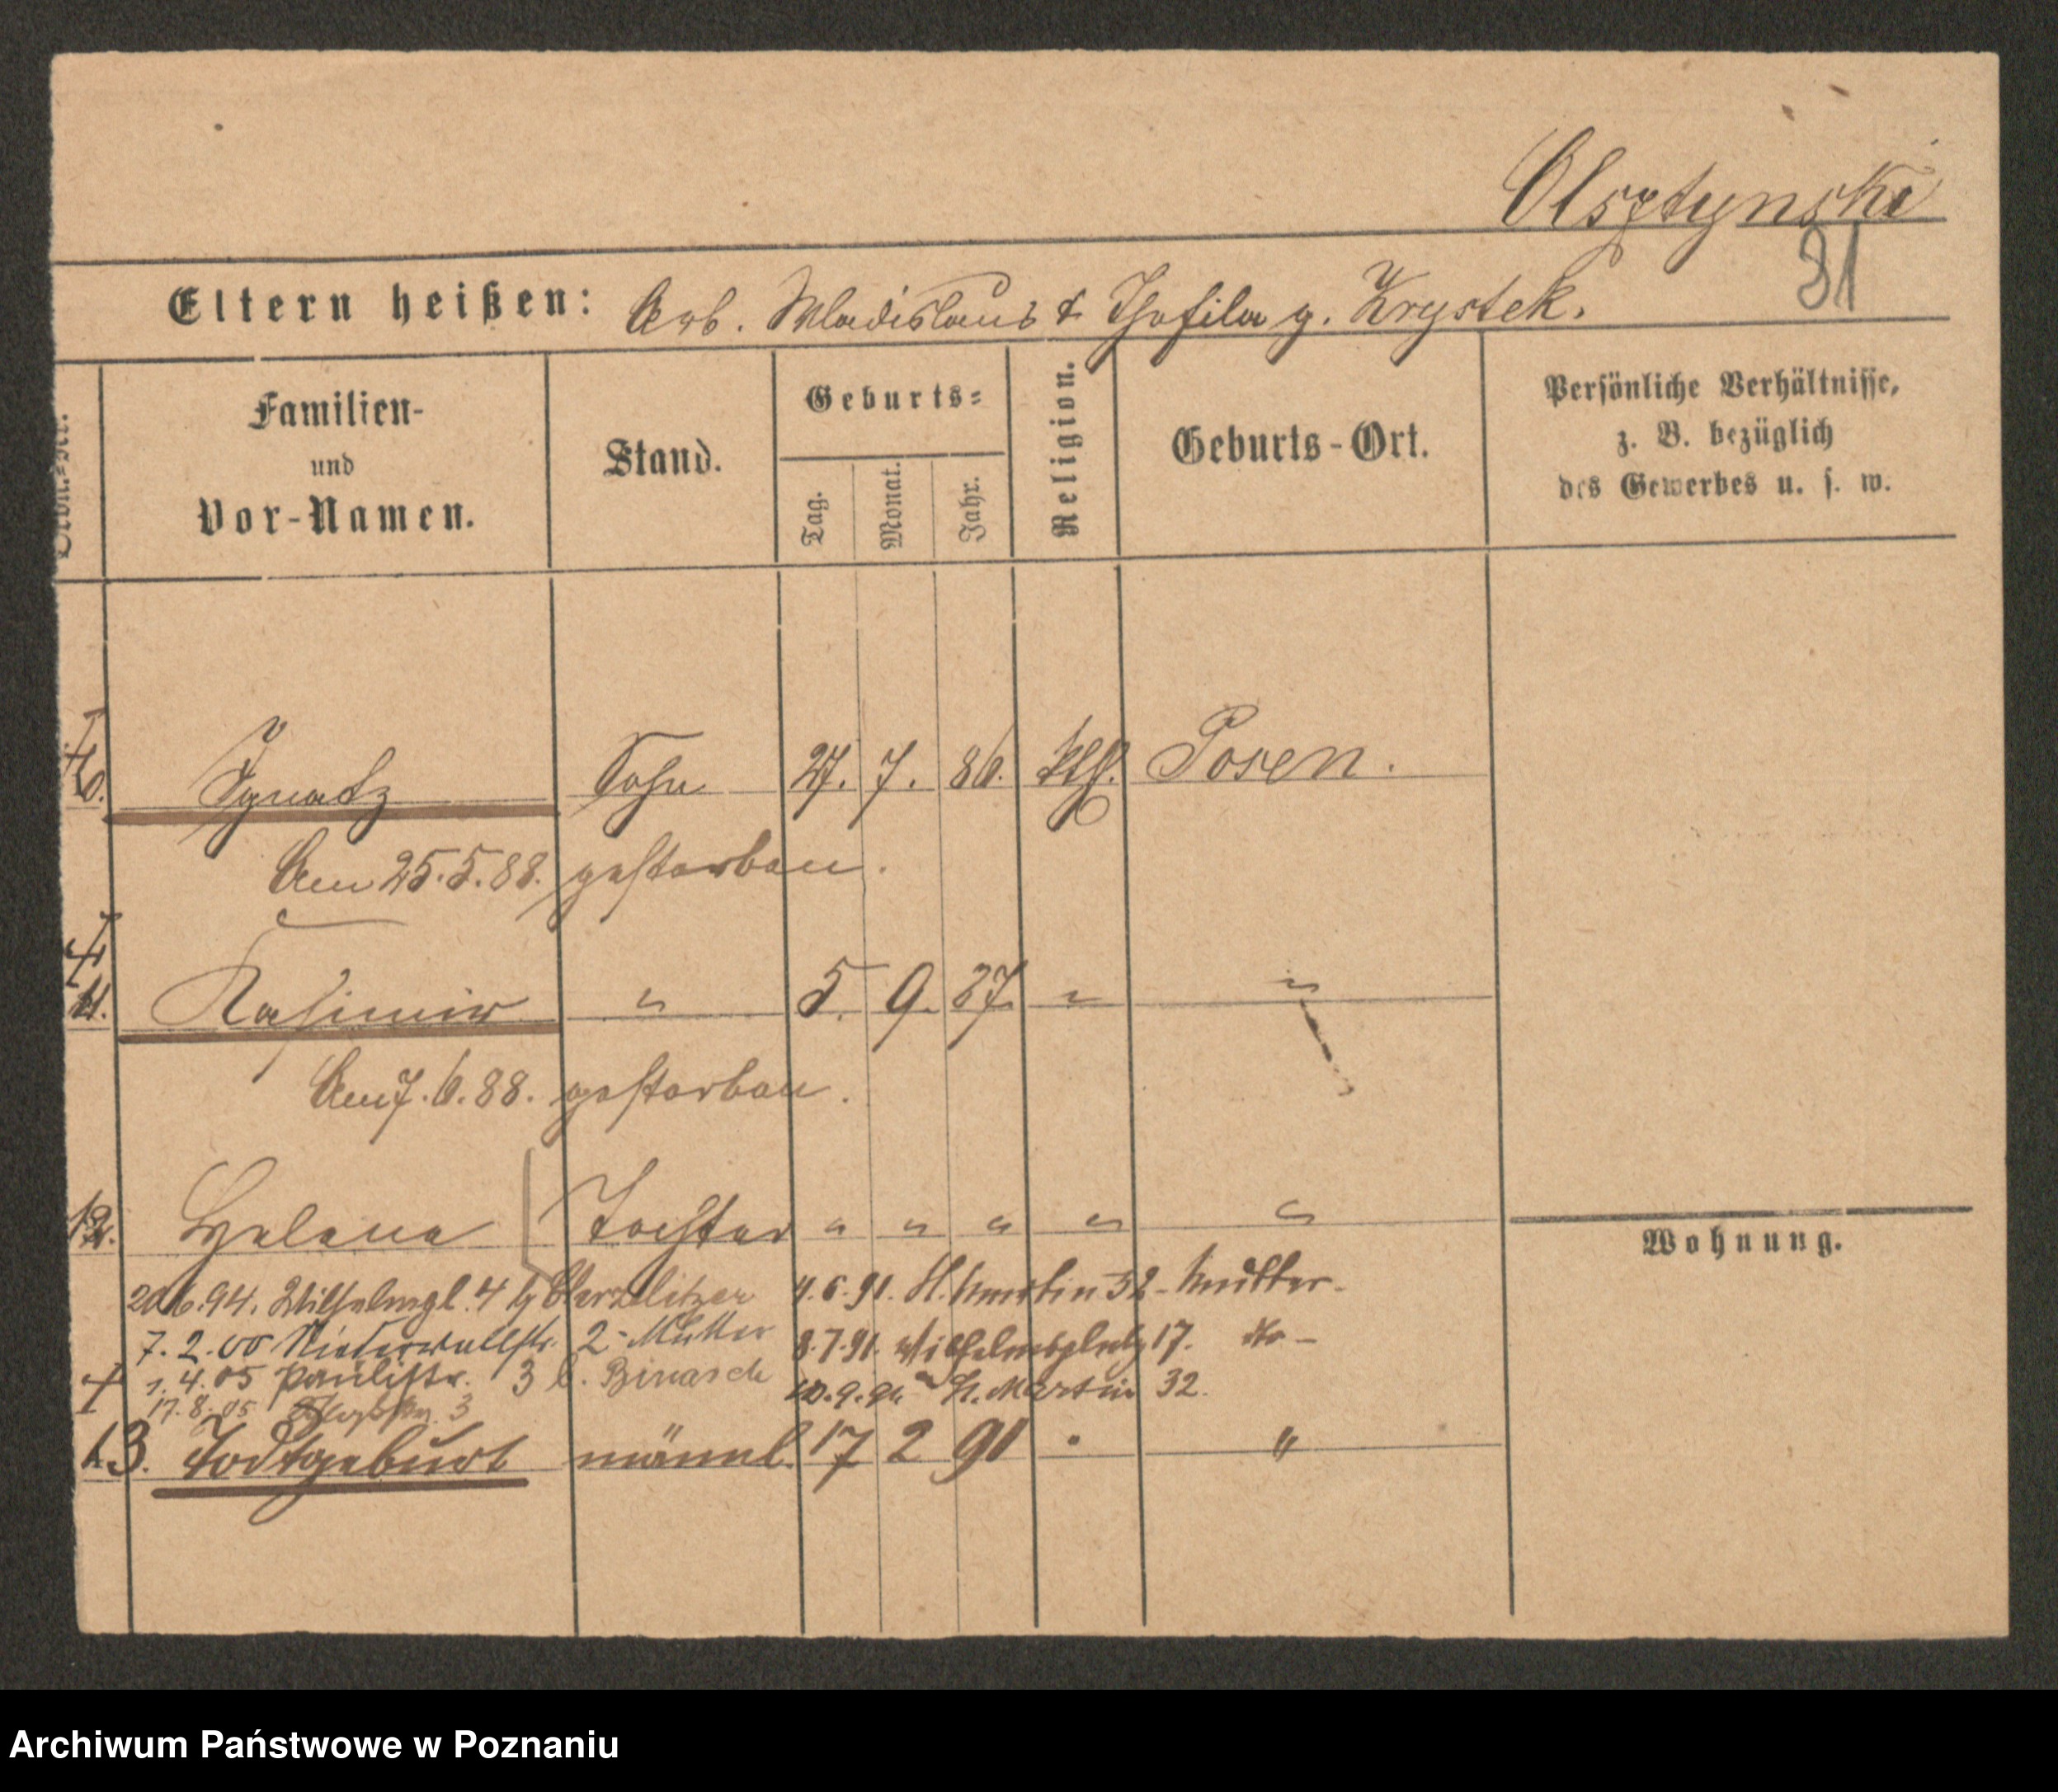 Olsztynski
31
Eltern heißen: Arb. Wladislaus & Thofila g. Krystek.
Ordn.-Nr.
Familien- und Vor-Namen.
Stand.
Geburts=
Tag.
Monat.
Jahr.
Religion.
Geburts-Ort.
Persönliche Verhältnisse,
z. B. bezüglich
des Gewerbes u. s. w.
10. Ignatz Sohn 27. 7. 86. kth. Posen.
Am 25.5.88. gestorben.
11. Kasimir " 5. 9. 87. " "
Am 7.6.88. gestorben.
12. Helena Tochter " " " " "
Wohnung.
20.6.94. Wilhelmpl. 4
4.6.91. St. Martin 32 - Mutter -
7.2.00 Niederwallstr. 2 - Mutter
8.7.91. Wilhelmsplatz 17. do -
1.4.05 Paulistr. 3 b. Binasch
St. Martin 32.
17.8.05 3
13. Todtgeburt männl. 17 2 91 "
Archiwum Państwowe w Poznaniu